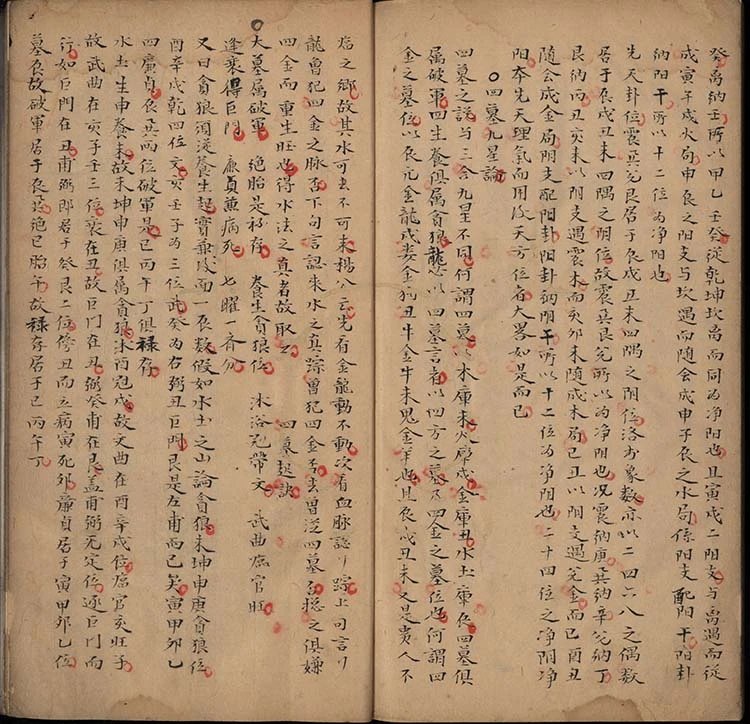 癸离納壬所以甲乙壬癸從乾坤坎离而同为净阳也且寅戌二阳支与离遇而从
戍寅午戌火局申辰之阳支与坎遇而随会成申子辰之水局係阳支配阳干阳卦
納阳干所以十二位为净阳也
先天卦位震巽兑艮居于辰戌丑未四隅之阴位洛书象数亦以二四六八之偶数
居于辰戌丑未四隅之阴位故震巽艮兑所以为净阴也况震納庚巽納辛兑納丁
艮納丙丑亥未以阴支遇震木而亥卯未随成木局巳丑以阴支遇兑金而巳酉丑
随会成金局阴支配阳卦阳卦納阴干所以十二位为净阴也二十四位之净阴净
阳本先天理氣而用後天方位者大畧如是而已
○四墓九星論
四墓之說与三合九星不同何謂四墓以木庫未火庫戌金庫丑水土庫辰四墓俱
属破軍四生養俱属貪狼龍 以四墓言者以四方之墓及四金之墓位也何謂四
金之墓位以辰亢金龍戌娄金狗丑牛金牛未鬼金羊也且辰戌丑未又是贵人不
㾗之鄉故其水可去不可来楊公云先看金龍動不動次看血脉認 踪上句言
龍曾犯四金之脉否下句言認来水之真踪曾犯四金否去曾從四墓否揔之俱嫌
四金而重生旺也得水法之真者故取之 四墓起訣
大墓属破軍 絶胎是禄存 养生貪狼位 沐浴冠帶文 武曲臨官旺
逢衰得巨門 廉貞兼病死 七曜一斉分
又曰貪狼須從养生起 兼 而一辰数假如水土之山論貪狼未坤申庚貪狼位
酉辛戌乾四位文亥壬子为三位武癸为右弼丑巨門艮是左甫而已矣寅甲卯乙
四廉貞辰巽两位破軍是巳丙午丁俱禄存
水土生申養未故未坤申庚俱属貪狼沐酉冠戌故文曲在酉辛戌位臨官亥旺子
故武曲在亥子壬三位衰在丑故巨門在丑弼癸甫在艮盖甫弼无定位逐巨門而
行如巨門在丑甫弼即居于癸艮二位傍丑而立病寅死卯廉貞居于寅甲卯乙位
墓辰故破軍居于辰巽絶巳胎午故禄存居于巳丙午丁